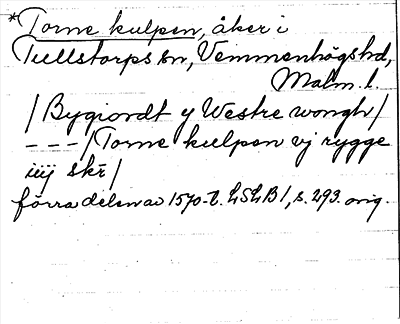 *Torne kulpen, åker i
Tullstorps sn, Vemmenhögs hd,
Malm. l.
/Bygiordt y Westre wongh/
---/Torne kulpen vj rygge
iiij skr/
förra delen av 1570-t. LSLB1, s. 293. orig.